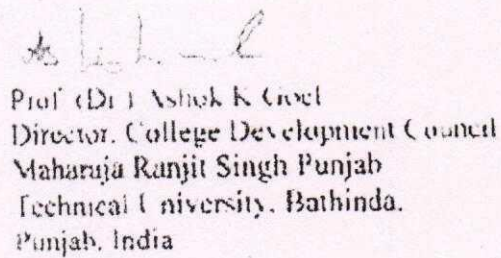 Prof (Dr.) Ashok K Goel
Director, College Development Council
Maharaja Ranjit Singh Punjab
Technical University, Bathinda,
Punjab, India